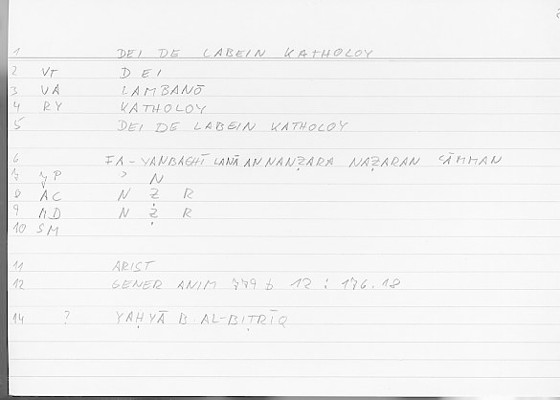 1 DEI DE LABEIN KATHOLOY
2 Vr DEI
3 VA LAMBANŌ
4 RY KATHOLOY
5 DEI DE LABEIN KATHOLOY
6 FA-YANBAGHĪ LANĀ AN NANẒARA NAẒARAN ʿĀMMAN
7 yP ʾ N
8 AC N Ẓ R
9 MD N Ẓ R
10 SM
11 ARIST
12 GENER ANIM 779 b 12 : 176.18
14 ? YAḤYĀ B AL-BIṬRĪQ